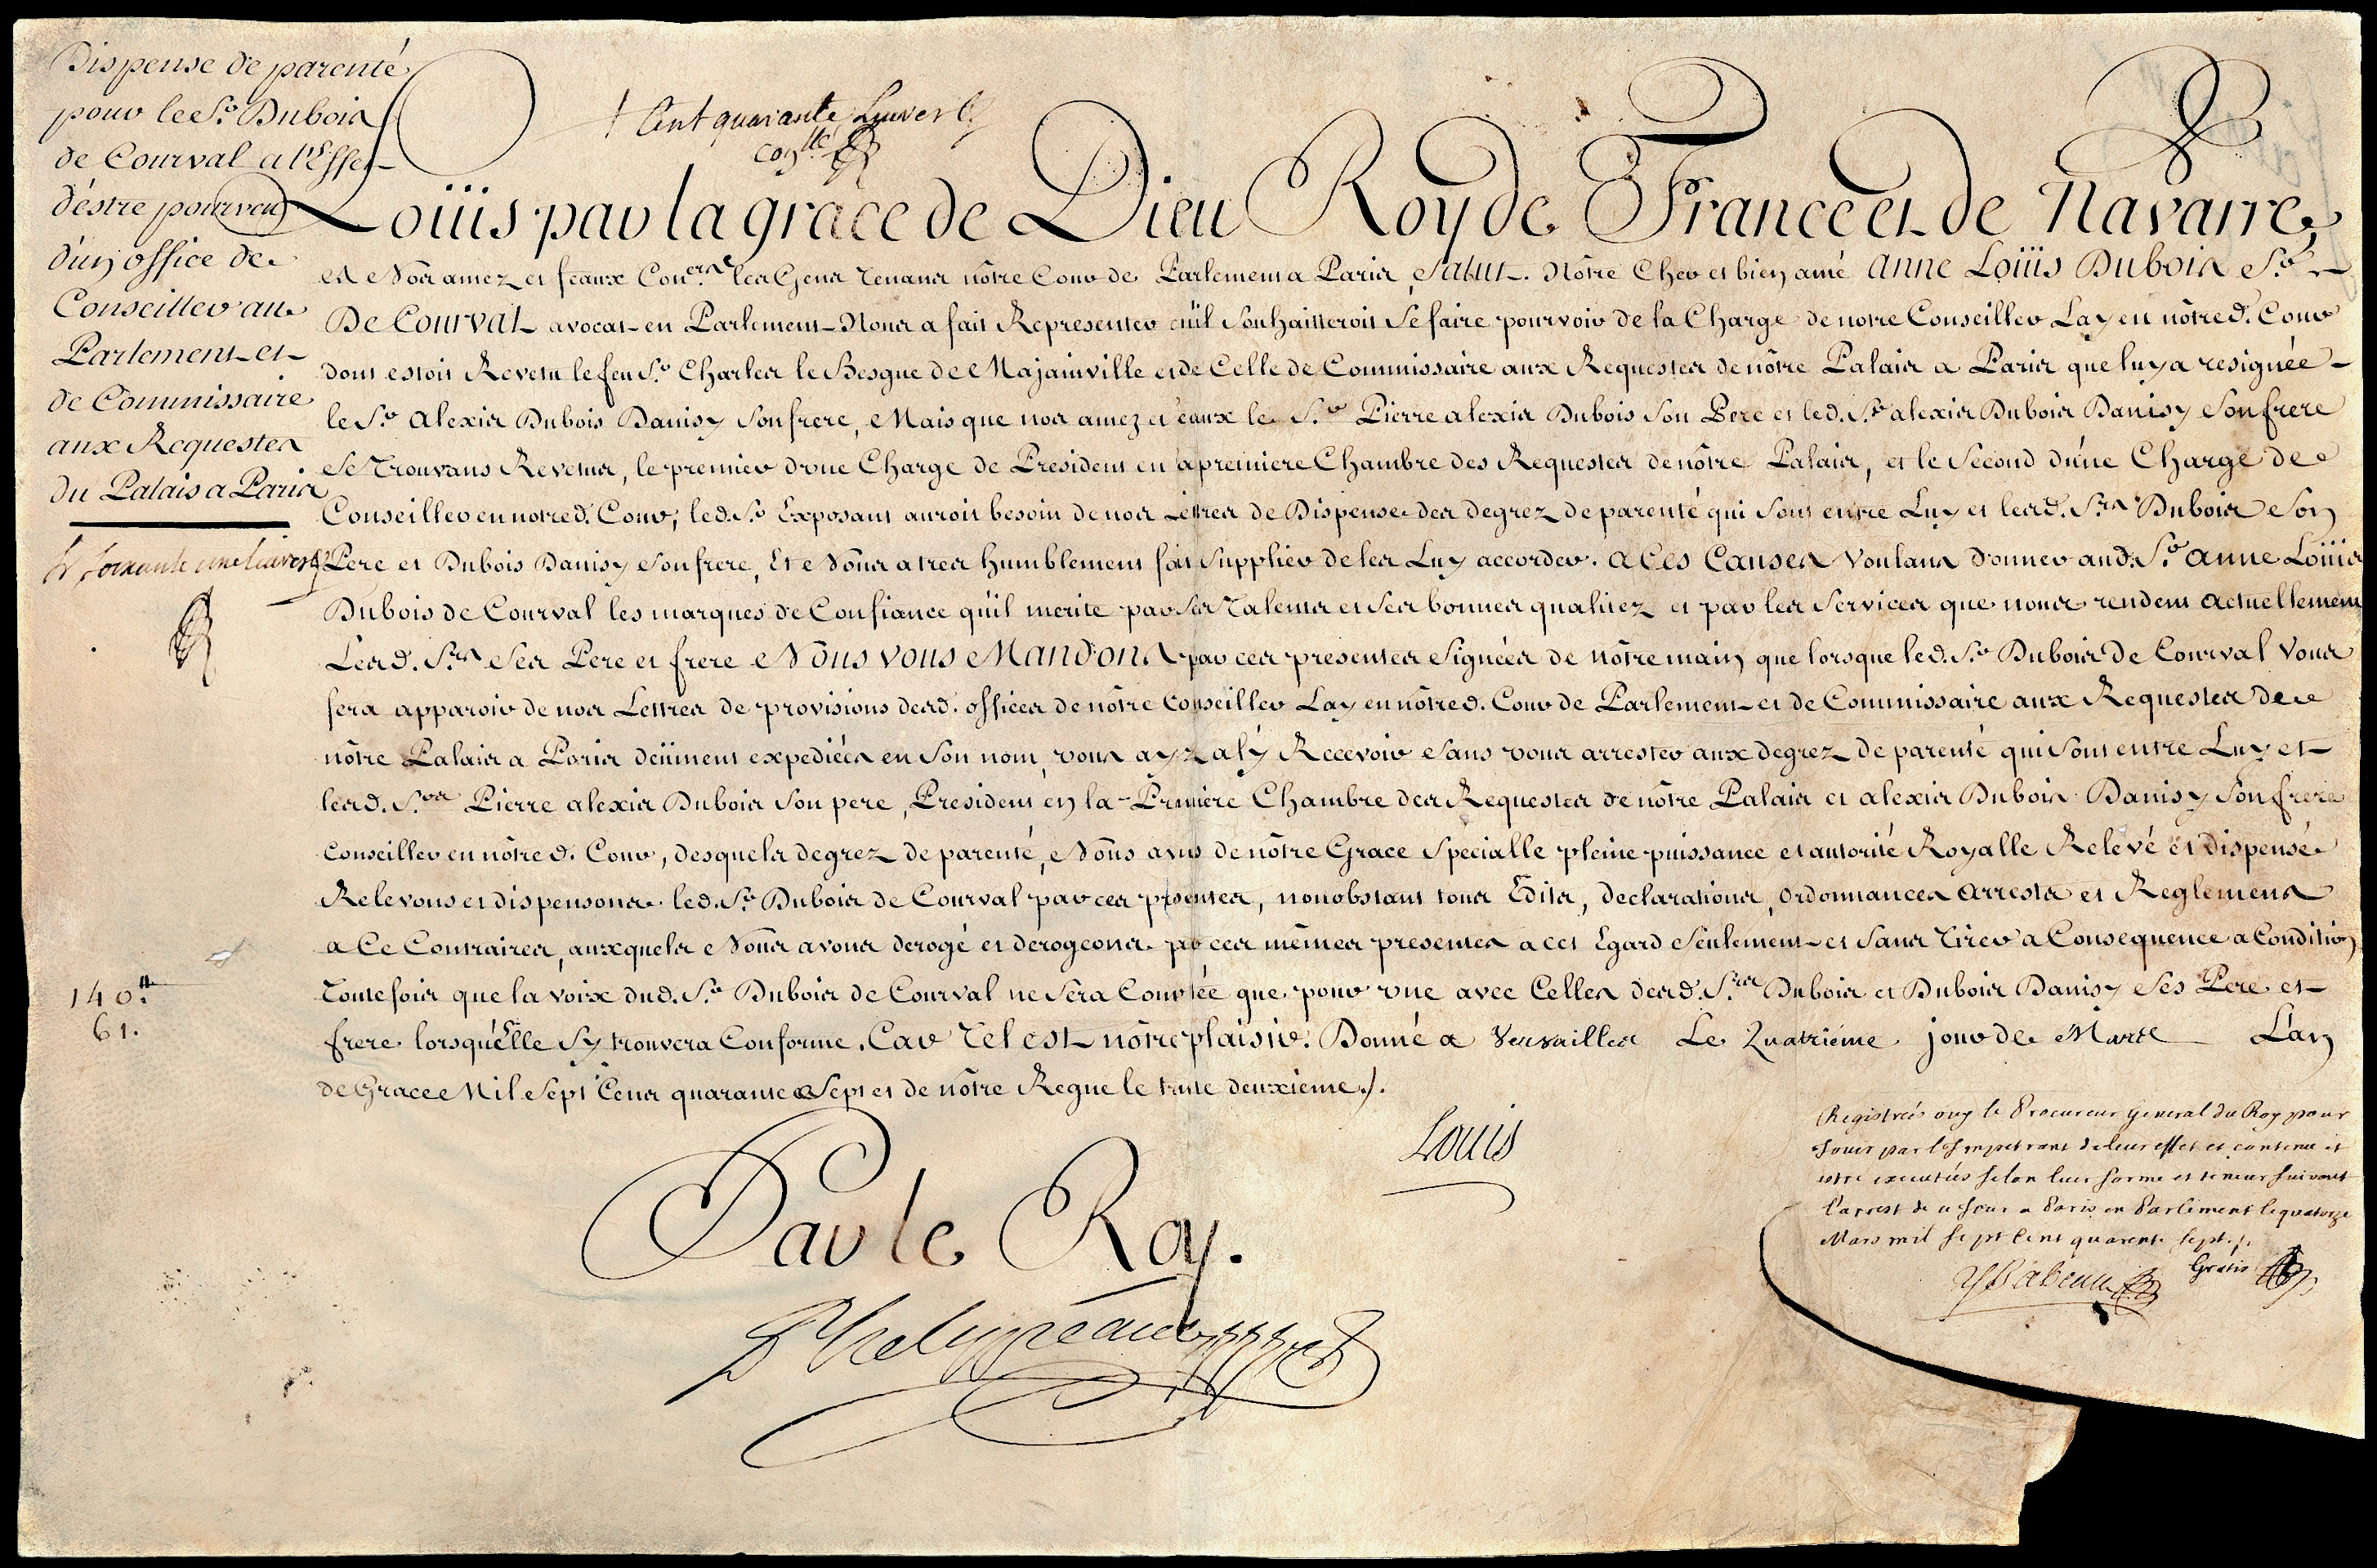 Dispense de parenté
pour le Sr. Dubois
de Courval a l'Effet
d'éstre pourveu
d'un office de
Conseiller au
Parlement et
de Commissaire
aux Requestes
du Palais a Paris
soixante une livres
140tt.
61.
Cent quarante
Loüis par la grace de Dieu Roy de France et de Navarre,
a Nos amez et feaux Coners. les Gens Tenans nôtre Cour de Parlement a Paris, Salut. Nôtre Cher et bien amé Anne Loüis Dubois Sr.
De Courval avocat en Parlement Nous a fait Representer qu'il Souhaitteroit Se faire pourvoir de la Charge de notre Conseiller Lay en nôtred. Cour
dont estoit Revetu le feu Sr. Charles le Besgue de Majainville et de Celle de Commissaire aux Requestes de nôtre Palais a Paris que luy a resignée
le Sr. Alexis Dubois Danisy Son frere, Mais que nos amez et feaux le Sr. Pierre alexis Dubois Son Pere et led. Sr. alexis Dubois Danisy Son frere
Se Trouvans Revetus, le premier d'une Charge de President en la premiere Chambre des Requestes de nôtre Palais, et le Second d'une Charge de
Conseiller en notred. Cour, led. Sr. Exposant auroit besoin de nos Lettres de Dispense des degrez de parenté qui Sont entre Luy et lesd. Srs. Dubois Son
Pere et Dubois Danisy Son frere, Et Nous a tres humblement fait Supplier de les Luy accorder. A Ces Causes Voulans donner aud. Sr. Anne Loüis
Dubois de Courval les marques de Confiance qu'il merite par Ses Talents et Ses bonnes qualitez et par les Services que nous rendent actuellement
Lesd. Srs. Ses Pere et frere Nous vous Mandons par ces presentes Signées de nôtre main que lorsque led. Sr. Dubois de Courval Vous
fera apparoir de nos Lettres de provisions desd. offices de nôtre Conseiller Lay en nôtred. Cour de Parlement et de Commissaire aux Requestes de
nôtre Palais a Paris deüment expediées en Son nom, vous ayez a l'y Recevoir Sans vous arrester aux degrez de parenté qui Sont entre Luy et
lesd. Srs. Pierre alexis Dubois Son pere, President en la Premiere Chambre des Requestes de nôtre Palais et alexis Dubois Danisy Son frere
Conseiller en nôtred. Cour, desquels degrez de parenté, Nous avons de nôtre Grace Specialle pleine puissance et autorité Royalle Relevé et dispensé
Relevons et dispensons led. Sr. Dubois de Courval par ces presentes, nonobstant tous Edits, Declarations, Ordonnances Arrests et Reglemens
a Ce Contraires, auxquels Nous avons derogé et derogeons par ces mêmes presentes a cet Egard Seulement et Sans Tirer a Consequence a Condition
Toutefois que la voix dud. Sr. Dubois de Courval ne Sera Comptée que pour une avec Celles desd. Srs. Dubois et Dubois Danisy Ses Pere et
frere lorsqu'Elle S'y trouvera Conforme. Car Tel est nôtre plaisir. Donné a Versailles Le Quatriéme jour de Mars L'an
de Grace Mil Sept Cens quarante Sept et de nôtre Regne le trente deuxieme.
Louis
Par le Roy.
Phelypeaux
Registrées ouy le Procureur General du Roy pour
Jouir par l'Impetrant de leur effet et contenu et
estre executées selon leur forme et teneur suivant
l'arrest de ce jour a Paris en Parlement le quatorze
Mars mil sept cent quarente sept.
Gratis
Ysabeau